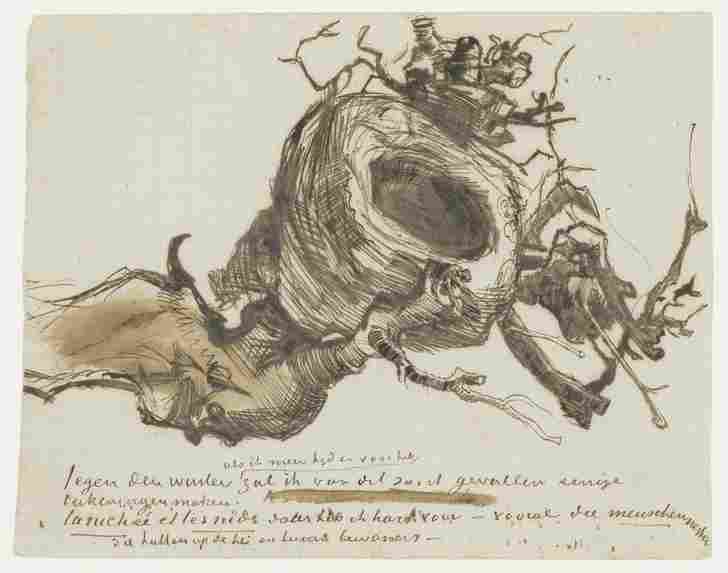 als ik meer tijd er voor heb
Tegen den winter zal ik van dit soort gevallen eenige
teekeningen maken.
La nichée et les nids daar heb ik hart voor – vooral die menschennesten
die hutten op de hei en hunne bewoners –